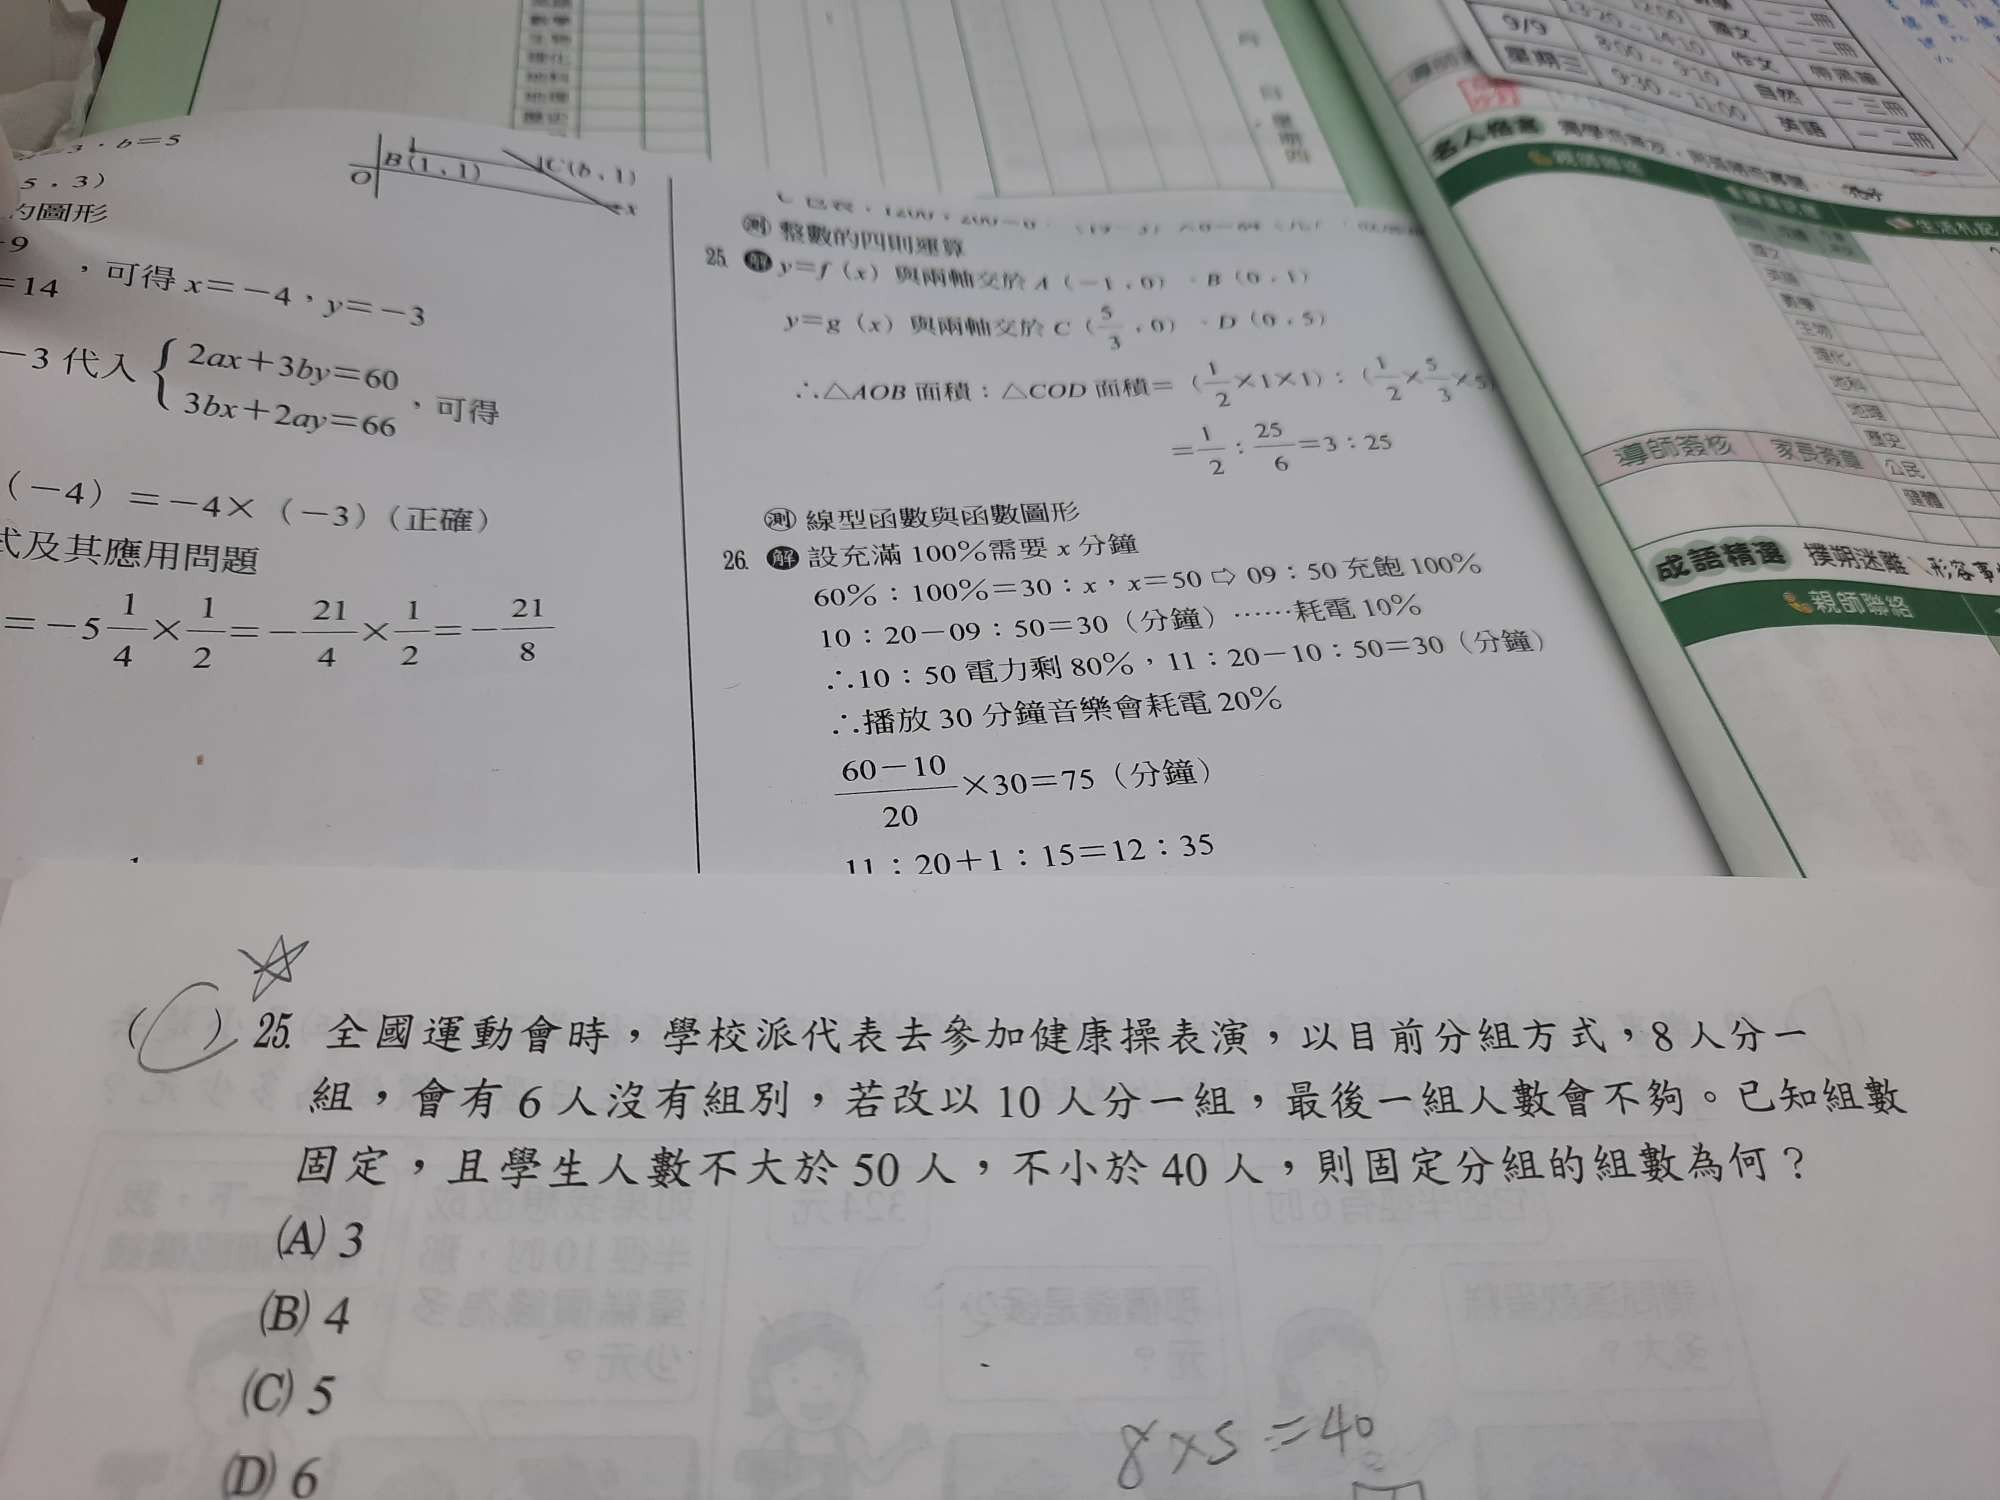 b=5
5，3）
的圖形
9
=14
，可得 x=－4，y=－3
－3 代入
2ax＋3by=60
3bx＋2ay=66
，可得
（－4）=－4×（－3）（正確）
式及其應用問題
=－5 1/4 × 1/2 =－ 21/4 × 1/2 =－ 21/8
B(1，1)
C(b，1)
O
x
測 整數的四則運算
25. 解 y=f（x）與兩軸交於 A（－1，0）、B（0，1）
y=g（x）與兩軸交於 C（5/3，0）、D（0，5）
∴△AOB 面積：△COD 面積=（1/2×1×1）：（1/2×5/3×5
=1/2：25/6=3：25
測 線型函數與函數圖形
26. 解 設充滿 100%需要 x 分鐘
60%：100%=30：x，x=50 ⇨ 09：50 充飽 100%
10：20－09：50=30（分鐘）……耗電 10%
∴10：50 電力剩 80%，11：20－10：50=30（分鐘）
∴播放 30 分鐘音樂會耗電 20%
60－10/20 ×30=75（分鐘）
11：20＋1：15=12：35
9/9
星期三
13:20 ~ 14:10 國文 一二冊
8:00 ~ 9:10 作文
9:30 ~ 11:00 自然 一三冊
英語 一二冊
名人格言
親師聯絡
生活札記
數學
生物
理化
地科
地理
歷史
公民
健體
導師簽核
家長簽章
成語精選 撲朔迷離
親師聯絡
( ) 25. 全國運動會時，學校派代表去參加健康操表演，以目前分組方式，8 人分一
組，會有 6 人沒有組別，若改以 10 人分一組，最後一組人數會不夠。已知組數
固定，且學生人數不大於 50 人，不小於 40 人，則固定分組的組數為何？
(A) 3
(B) 4
(C) 5
(D) 6
8×5=40